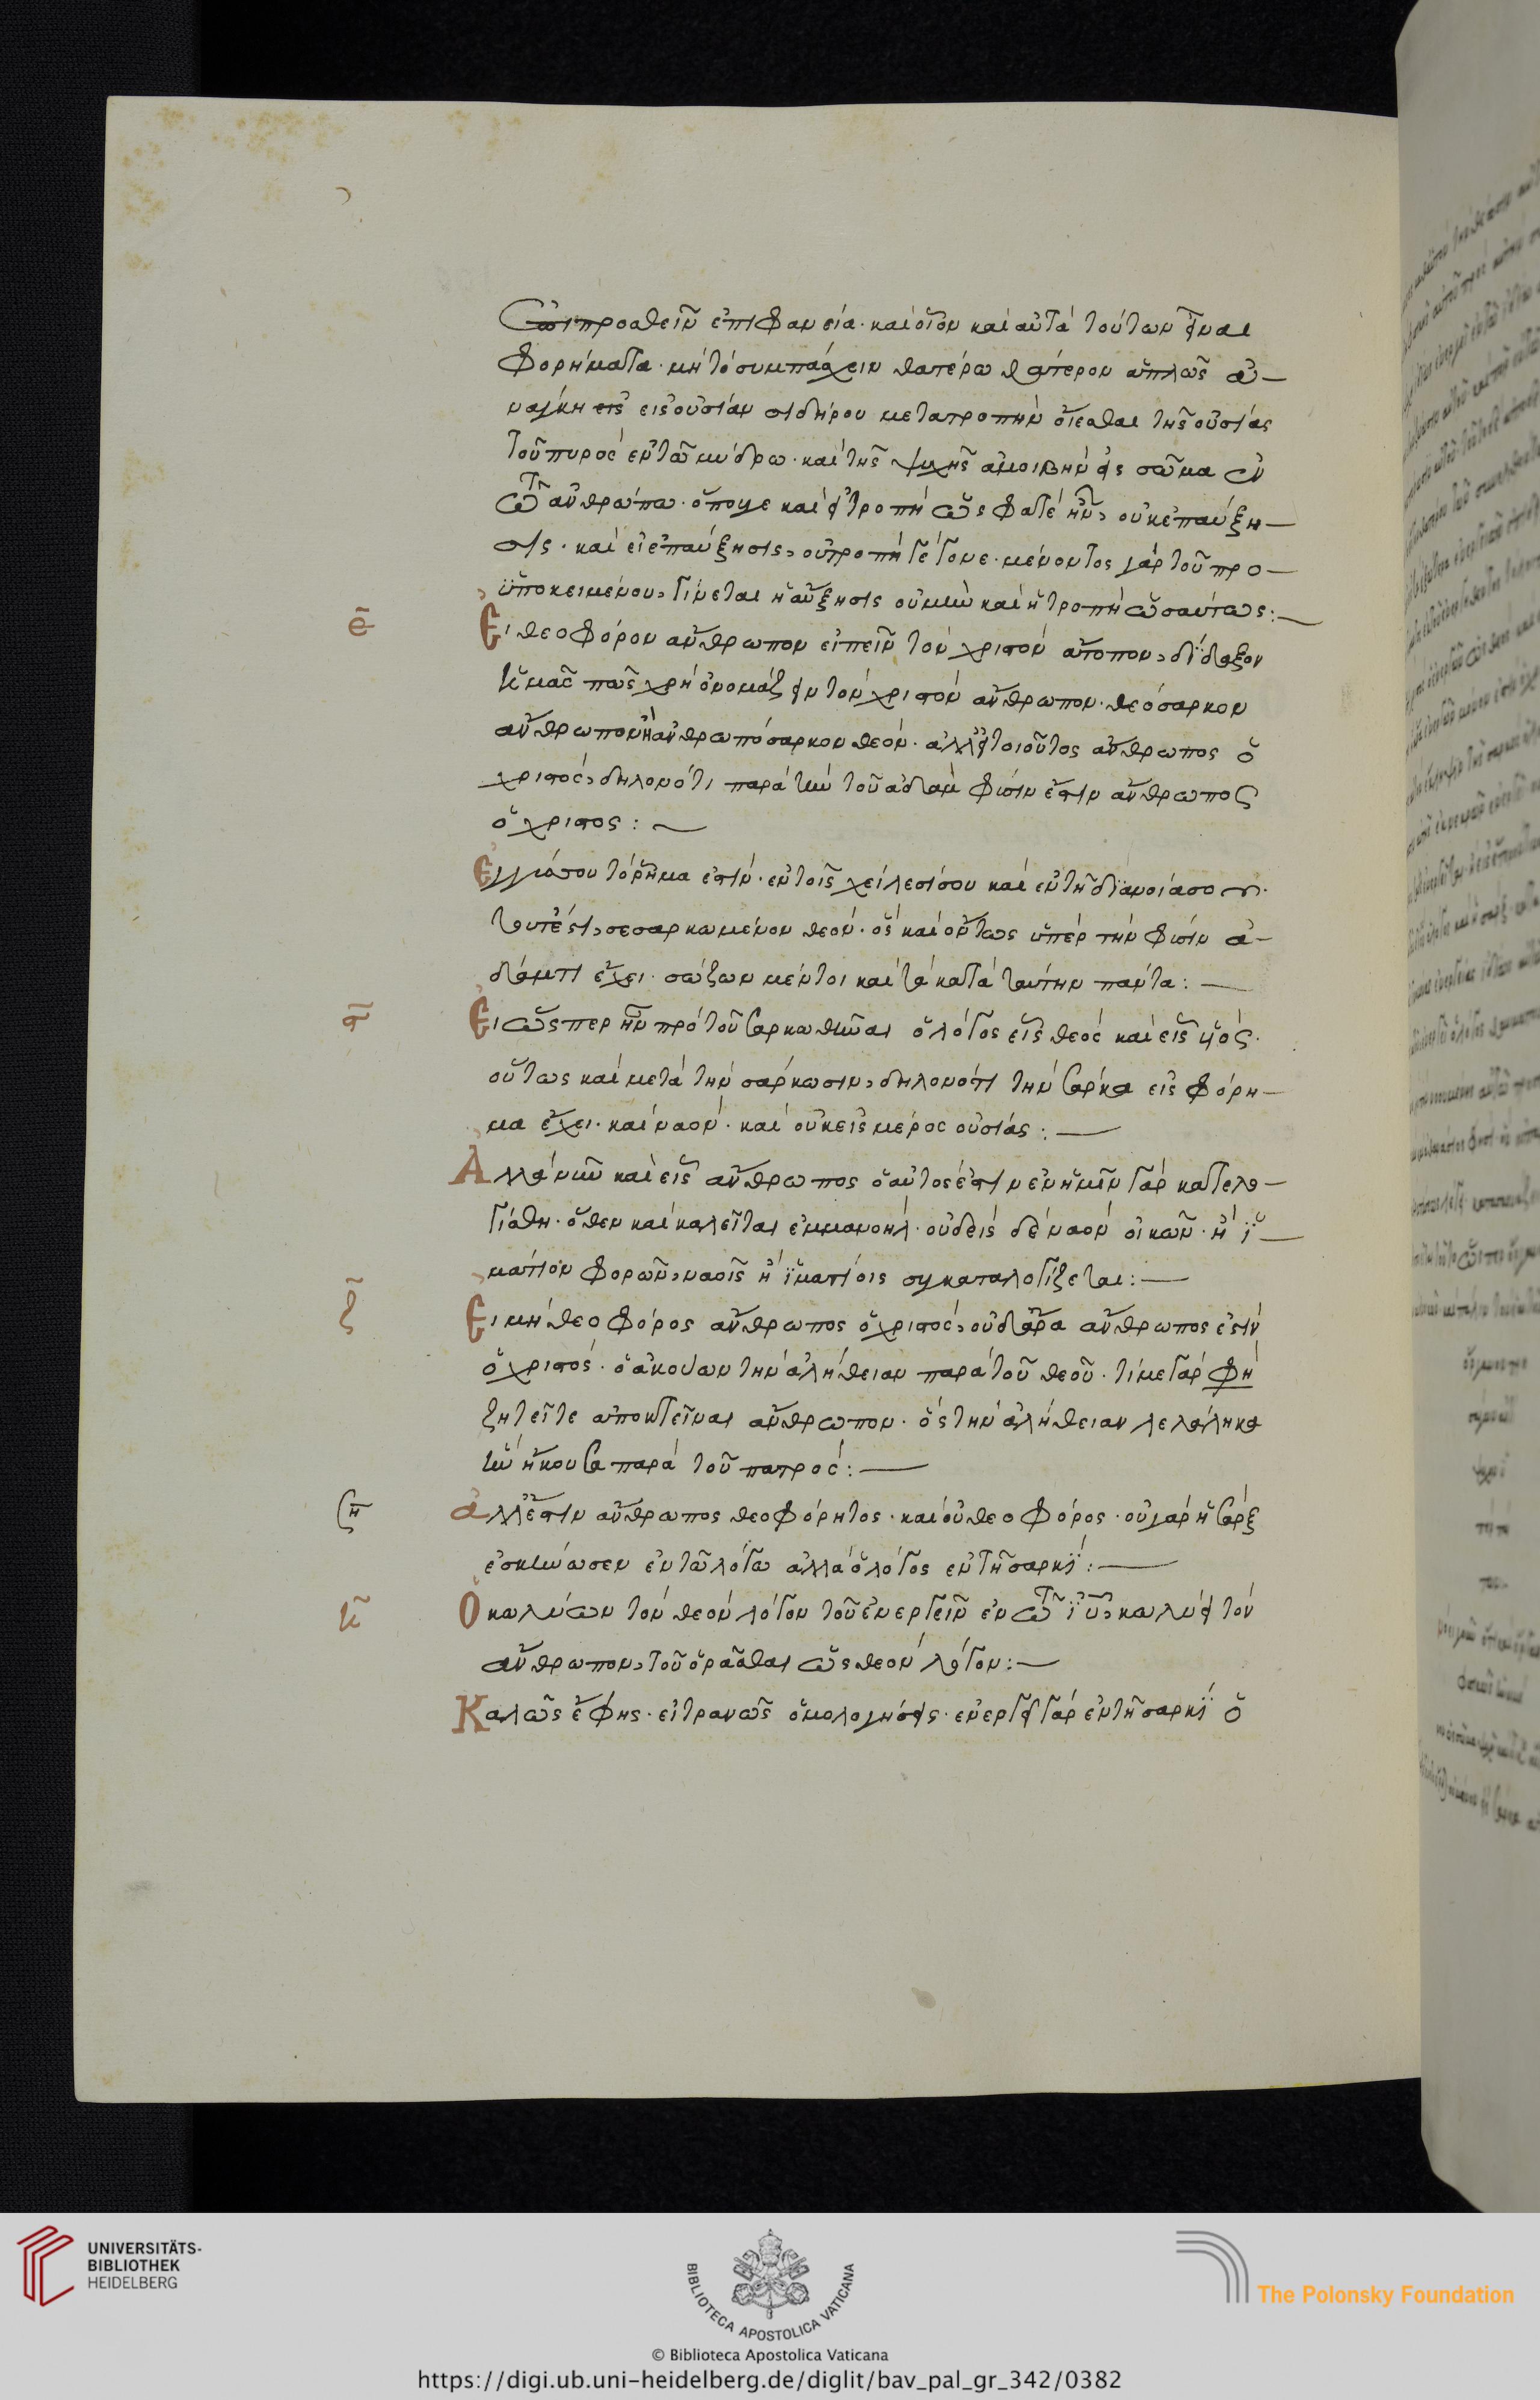 προσθεῖν ἐπιφανεία· καὶ οἷον καὶ αὐτὰ τούτων εἶναι
φορήματα· μὴ τὸ συμπάσχειν θατέρω θάτερον ἁπλῶς ἀ-
νάγκη εἰς εἰς οὐσίαν σιδήρου μετατροπὴν οἴεσθαι τῆς οὐσίας
τοῦ πυρὸς ἐν τῶ μύδρω· καὶ τῆς ψυχῆς ἀμοιβὴν εἰς σῶμα ἐν
τῶ ἀνθρώπω· ὅπουγε καὶ εἰ τροπὴ ὥς φατὲ ἦν, οὐκ ἐπαύξη-
σις· καὶ εἰ ἐπαύξησις, οὐ τροπὴ γέγονε· μένοντος γὰρ τοῦ προ-
ϋποκειμένου, γίνεται ἡ αὔξησις οὐ μὴν καὶ ἡ τροπὴ ὡσαύτως:
ε̄ Εἰ θεοφόρον ἄνθρωπον εἰπεῖν τὸν χριστὸν ἄτοπον, δίδαξον
ἡμᾶς πῶς χρὴ ὀνομάζειν τὸν χριστὸν ἄνθρωπον· θεόσαρκον
ἄνθρωπον ἢ ἀνθρωπόσαρκον θεόν· ἀλλ' εἰ τοιοῦτος ἄνθρωπος ὁ
χριστός, δηλονότι παρὰ τὴν τοῦ ἀδὰμ φύσιν ἐστὶν ἄνθρωπος
ὁ χριστος:
Ἐγγύς σου τὸ ῥῆμα ἐστίν· ἐν τοῖς χείλεσί σου καὶ ἐν τῆ διανοία σου·
τουτέστι, σεσαρκωμένον θεόν· ὃς καὶ ὄντως ὑπὲρ τὴν φύσιν ἀ-
δάμ τι ἔχει· σώζων μέντοι καὶ τὰ κατὰ ταύτην πάντα:
ϛ̄ Εἰ ὥσπερ ἦν πρὸ τοῦ σαρκωθῆναι ὁ λόγος εἷς θεὸς καὶ εἷς υἱός·
οὕτως καὶ μετὰ τὴν σάρκωσιν, δηλονότι τὴν σάρκα εἰς φόρη-
μα ἔχει· καὶ ναόν· καὶ οὐκ εἰς μέρος οὐσίας:
Ἀλλὰ νῦν καὶ εἷς ἄνθρωπος ὁ αὐτός ἐστιν ἐν ἡμῖν γὰρ κατελο-
γίσθη· ὅθεν καὶ καλεῖται ἐμμανουήλ· οὐδεὶς δὲ ναὸν οἰκῶν· ἢ ἱ-
μάτιον φορῶν, ναοῖς ἢ ἱματίοις συγκαταλογίζεται:
ζ̄ Εἰ μὴ θεοφόρος ἄνθρωπος ὁ χριστός, οὐδ' ἄρα ἄνθρωπος ἐστὶν
ὁ χριστός· ὁ ἀκούων τὴν ἀλήθειαν παρὰ τοῦ θεοῦ· τί με γάρ φη
ζητεῖτε ἀποκτεῖναι ἄνθρωπον· ὃς τὴν ἀλήθειαν λελάληκα
ἣν ἤκουσα παρὰ τοῦ πατρός:
ἀλλ' ἔστιν ἄνθρωπος θεοφόρητος· καὶ οὐ θεοφόρος· οὐ γὰρ ἡ σὰρξ
ἐσκήνωσεν ἐν τῶ λόγω ἀλλὰ ὁ λόγος ἐν τῆ σαρκί:
Ὁ κωλύων τὸν θεὸν λόγον τοῦ ἐνεργεῖν ἐν τῶ ιυ, κωλύει τὸν
ἄνθρωπον, τοῦ ὁρᾶσθαι ὡς θεὸν λόγον:
Καλῶς ἔφης· εἰ τρανῶς ὁμολογήσεις· ἐνεργεῖ γὰρ ἐν τῆ σαρκὶ ὁ
UNIVERSITÄTS-
BIBLIOTHEK
HEIDELBERG
BIBLIOTECA APOSTOLICA VATICANA
The Polonsky Foundation
© Biblioteca Apostolica Vaticana
https://digi.ub.uni-heidelberg.de/diglit/bav_pal_gr_342/0382